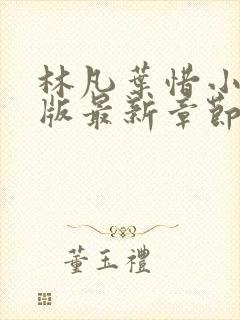 林凡葉惜小
版最新章節
董玉禮